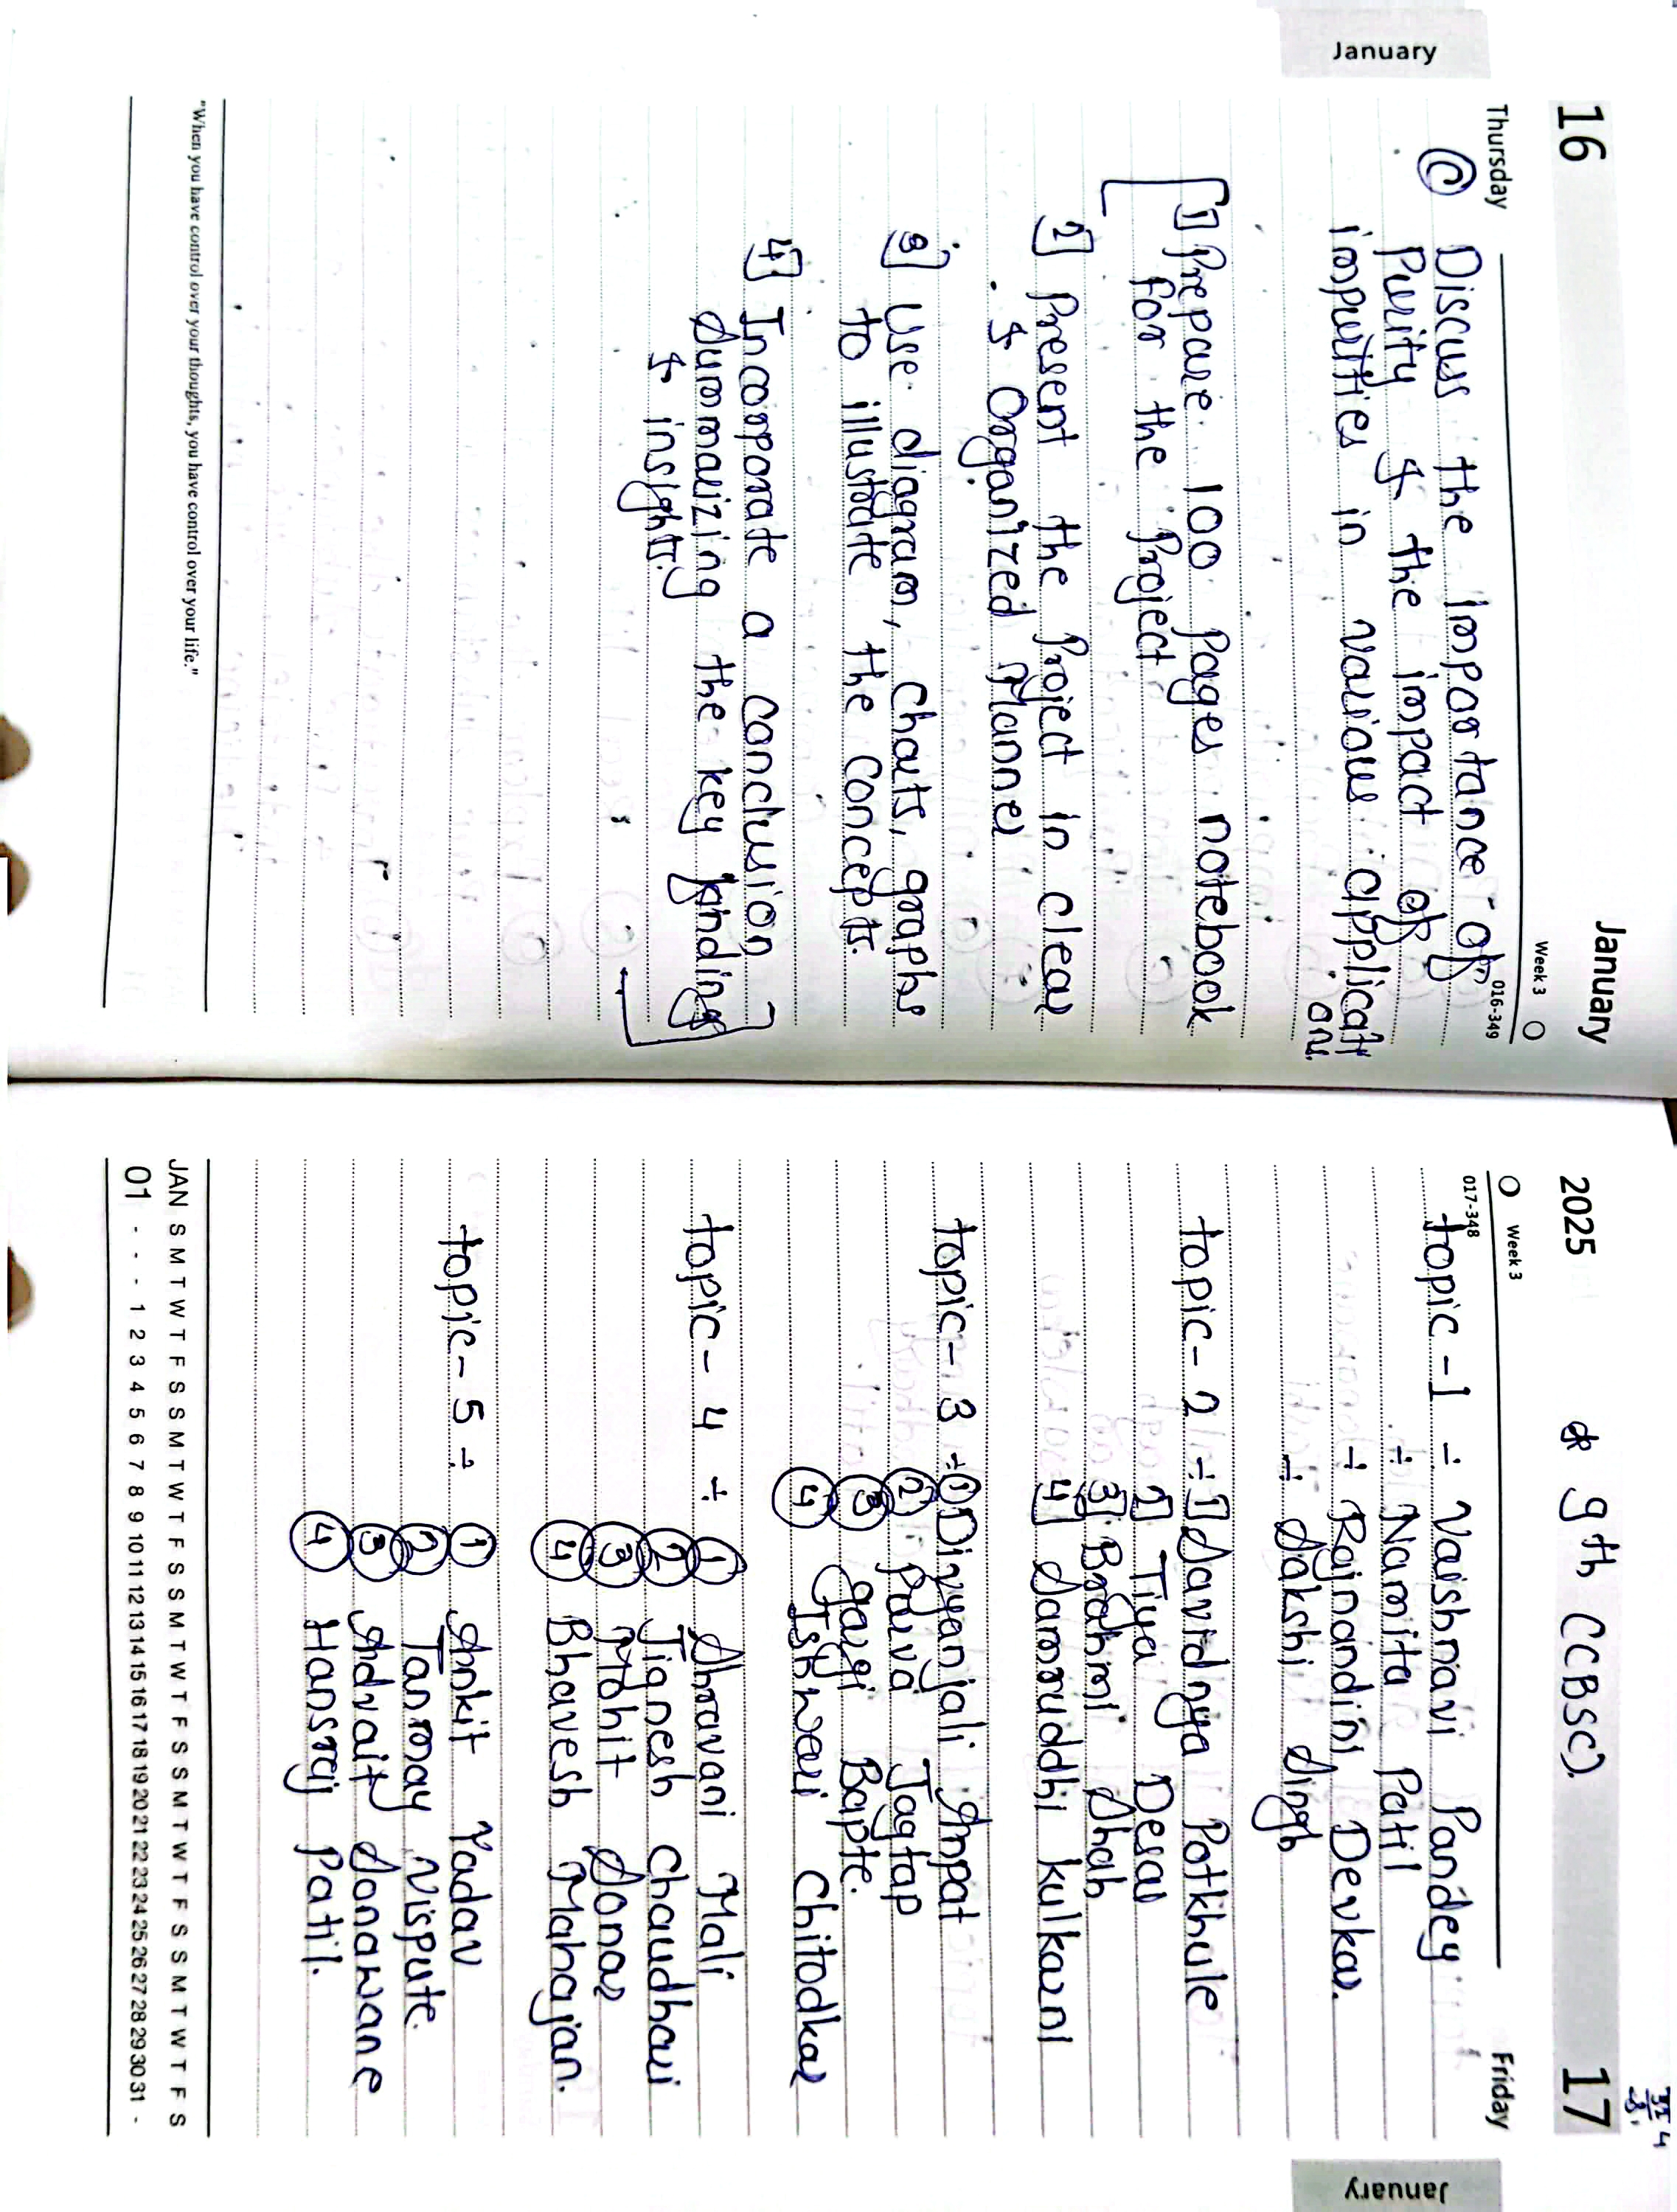 January
16 January
Thursday Week 3 016-349
Ⓒ Discuss the importance of
Purity & the impact of
impurities in various applicati
ons.
1] Prepare 100 pages notebook
for the project
2] Present the Project in clear
& Organized Manner
3] Use diagram, charts, graphs
to illustrate the concepts.
4] Incorporate a conclusion
summarizing the key findings
& insights.
"When you have control over your thoughts, you have control over your life."
2025 * 9th (CBSC). 17
Week 3 Friday
017-348
topic - 1 ÷ Vaishnavi Pandey
÷ Namita Patil
÷ Rajnandini Devkar.
÷ Sakshi Singh
topic - 2 ÷ 1] Savidnya Potkhule
2] Tiya Desai
3] Brahmi Shah
4] Samruddhi kulkarni
topic - 3 ÷ ① Divyanjali Anpat
② Purva Jagtap
③ Gargi Bapte.
④ Ishwari Chitodkar
topic - 4 ÷ ① Shravani Mali
② Jignesh Chaudhari
③ Mohit Sonar
④ Bhavesh Mahajan.
topic - 5 ÷ ① Ankit Yadav
② Tanmay Vispute.
③ Advait Sonawane
④ Hansraj Patil.
JAN S M T W T F S S M T W T F S S M T W T F S S M T W T F S S M T W T F S
01 - - - 1 2 3 4 5 6 7 8 9 10 11 12 13 14 15 16 17 18 19 20 21 22 23 24 25 26 27 28 29 30 31 -
January